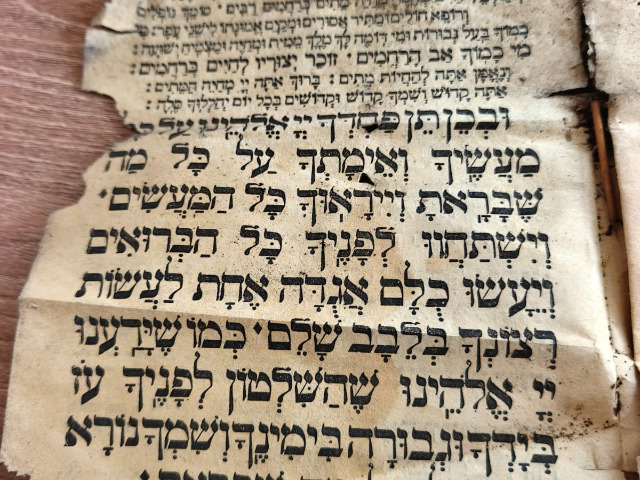 מתים ברחמים רבים. סומך נופלים
ורופא חולים ומתיר אסורים ומקים אמונתו לישני עפר. מי
כמוך בעל גבורות ומי דומה לך מלך ממית ומחיה ומצמיח ישועה:
מי כמוך אב הרחמים זוכר יצוריו לחיים ברחמים:
ונאמן אתה להחיות מתים: ברוך אתה יי מחיה המתים:
אתה קדוש ושמך קדוש וקדושים בכל יום יהללוך סלה:
וּבְכֵן תֵּן פַּחְדְּךָ יְיָ אֱלֹהֵינוּ עַל כָּל
מַעֲשֶׂיךָ וְאֵימָתְךָ עַל כָּל מַה
שֶּׁבָּרָאתָ וְיִירָאוּךָ כָּל הַמַּעֲשִׂים.
וְיִשְׁתַּחֲווּ לְפָנֶיךָ כָּל הַבְּרוּאִים
וְיֵעָשׂוּ כֻלָּם אֲגֻדָּה אֶחָת לַעֲשׂוֹת
רְצוֹנְךָ בְּלֵבָב שָׁלֵם. כְּמוֹ שֶׁיָּדַעְנוּ
יְיָ אֱלֹהֵינוּ שֶׁהַשִּׁלְטוֹן לְפָנֶיךָ עוֹז
בְּיָדְךָ וּגְבוּרָה בִּימִינֶךָ וְשִׁמְךָ נוֹרָא